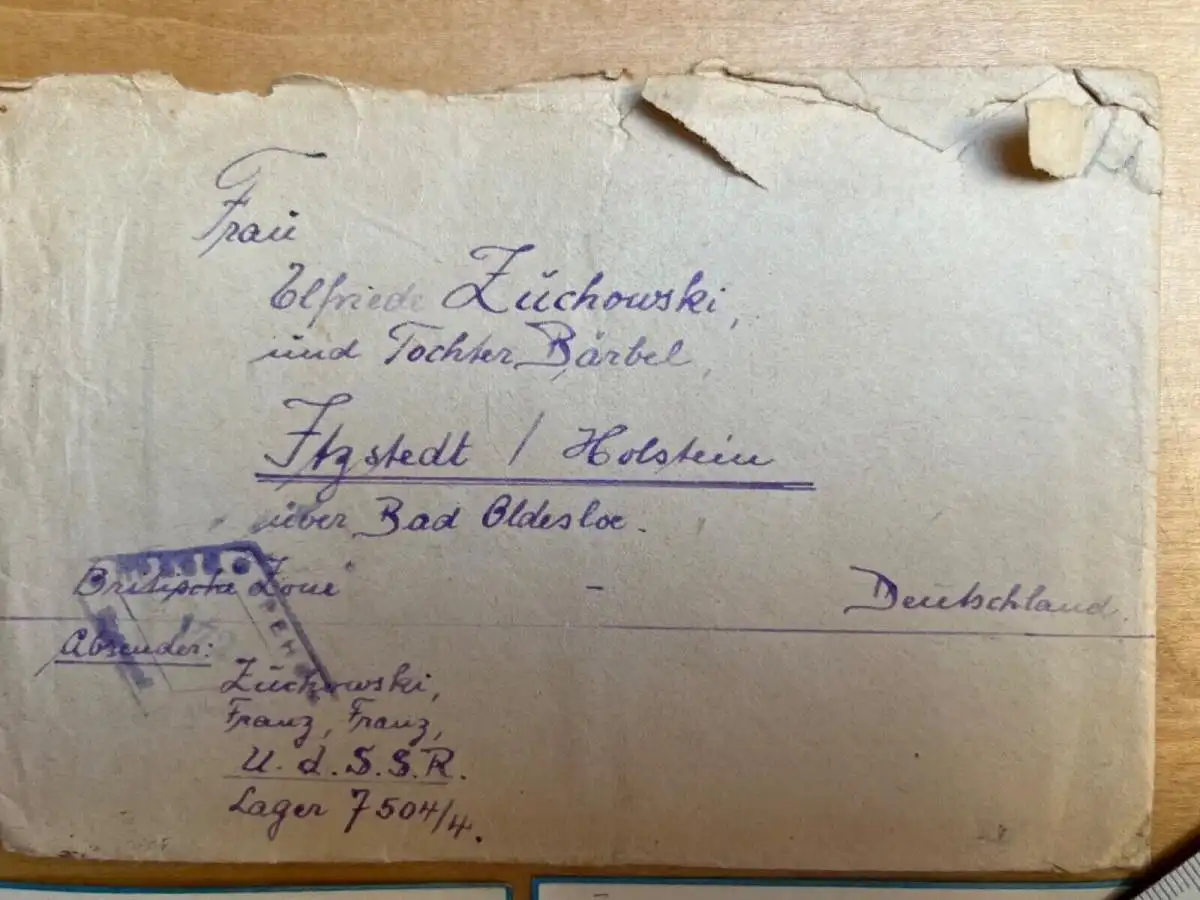 Frau
Elfriede Zuchowski,
und Tochter Bärbel,
Itzstedt / Holstein
über Bad Oldesloe.
Britische Zone - Deutschland
Absender:
Zuchowski,
Franz, Franz,
U.d.S.S.R.
Lager 7504/4.